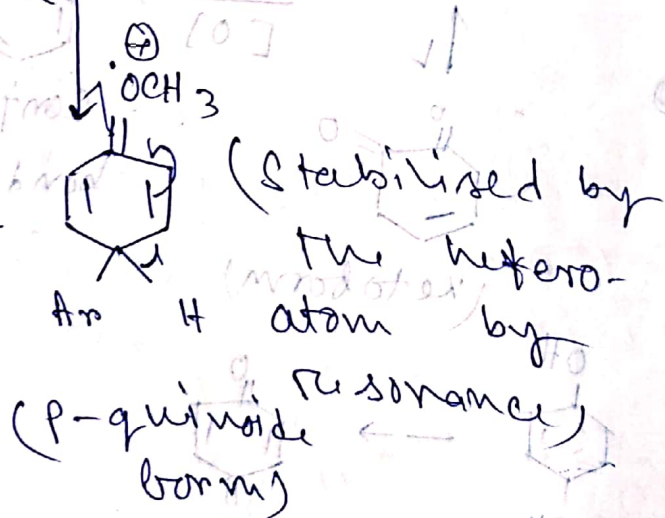 ⊕
OCH3
(Stabilised by
the hetero-
Ar H atom by
resonance)
(p-quinoide
form)